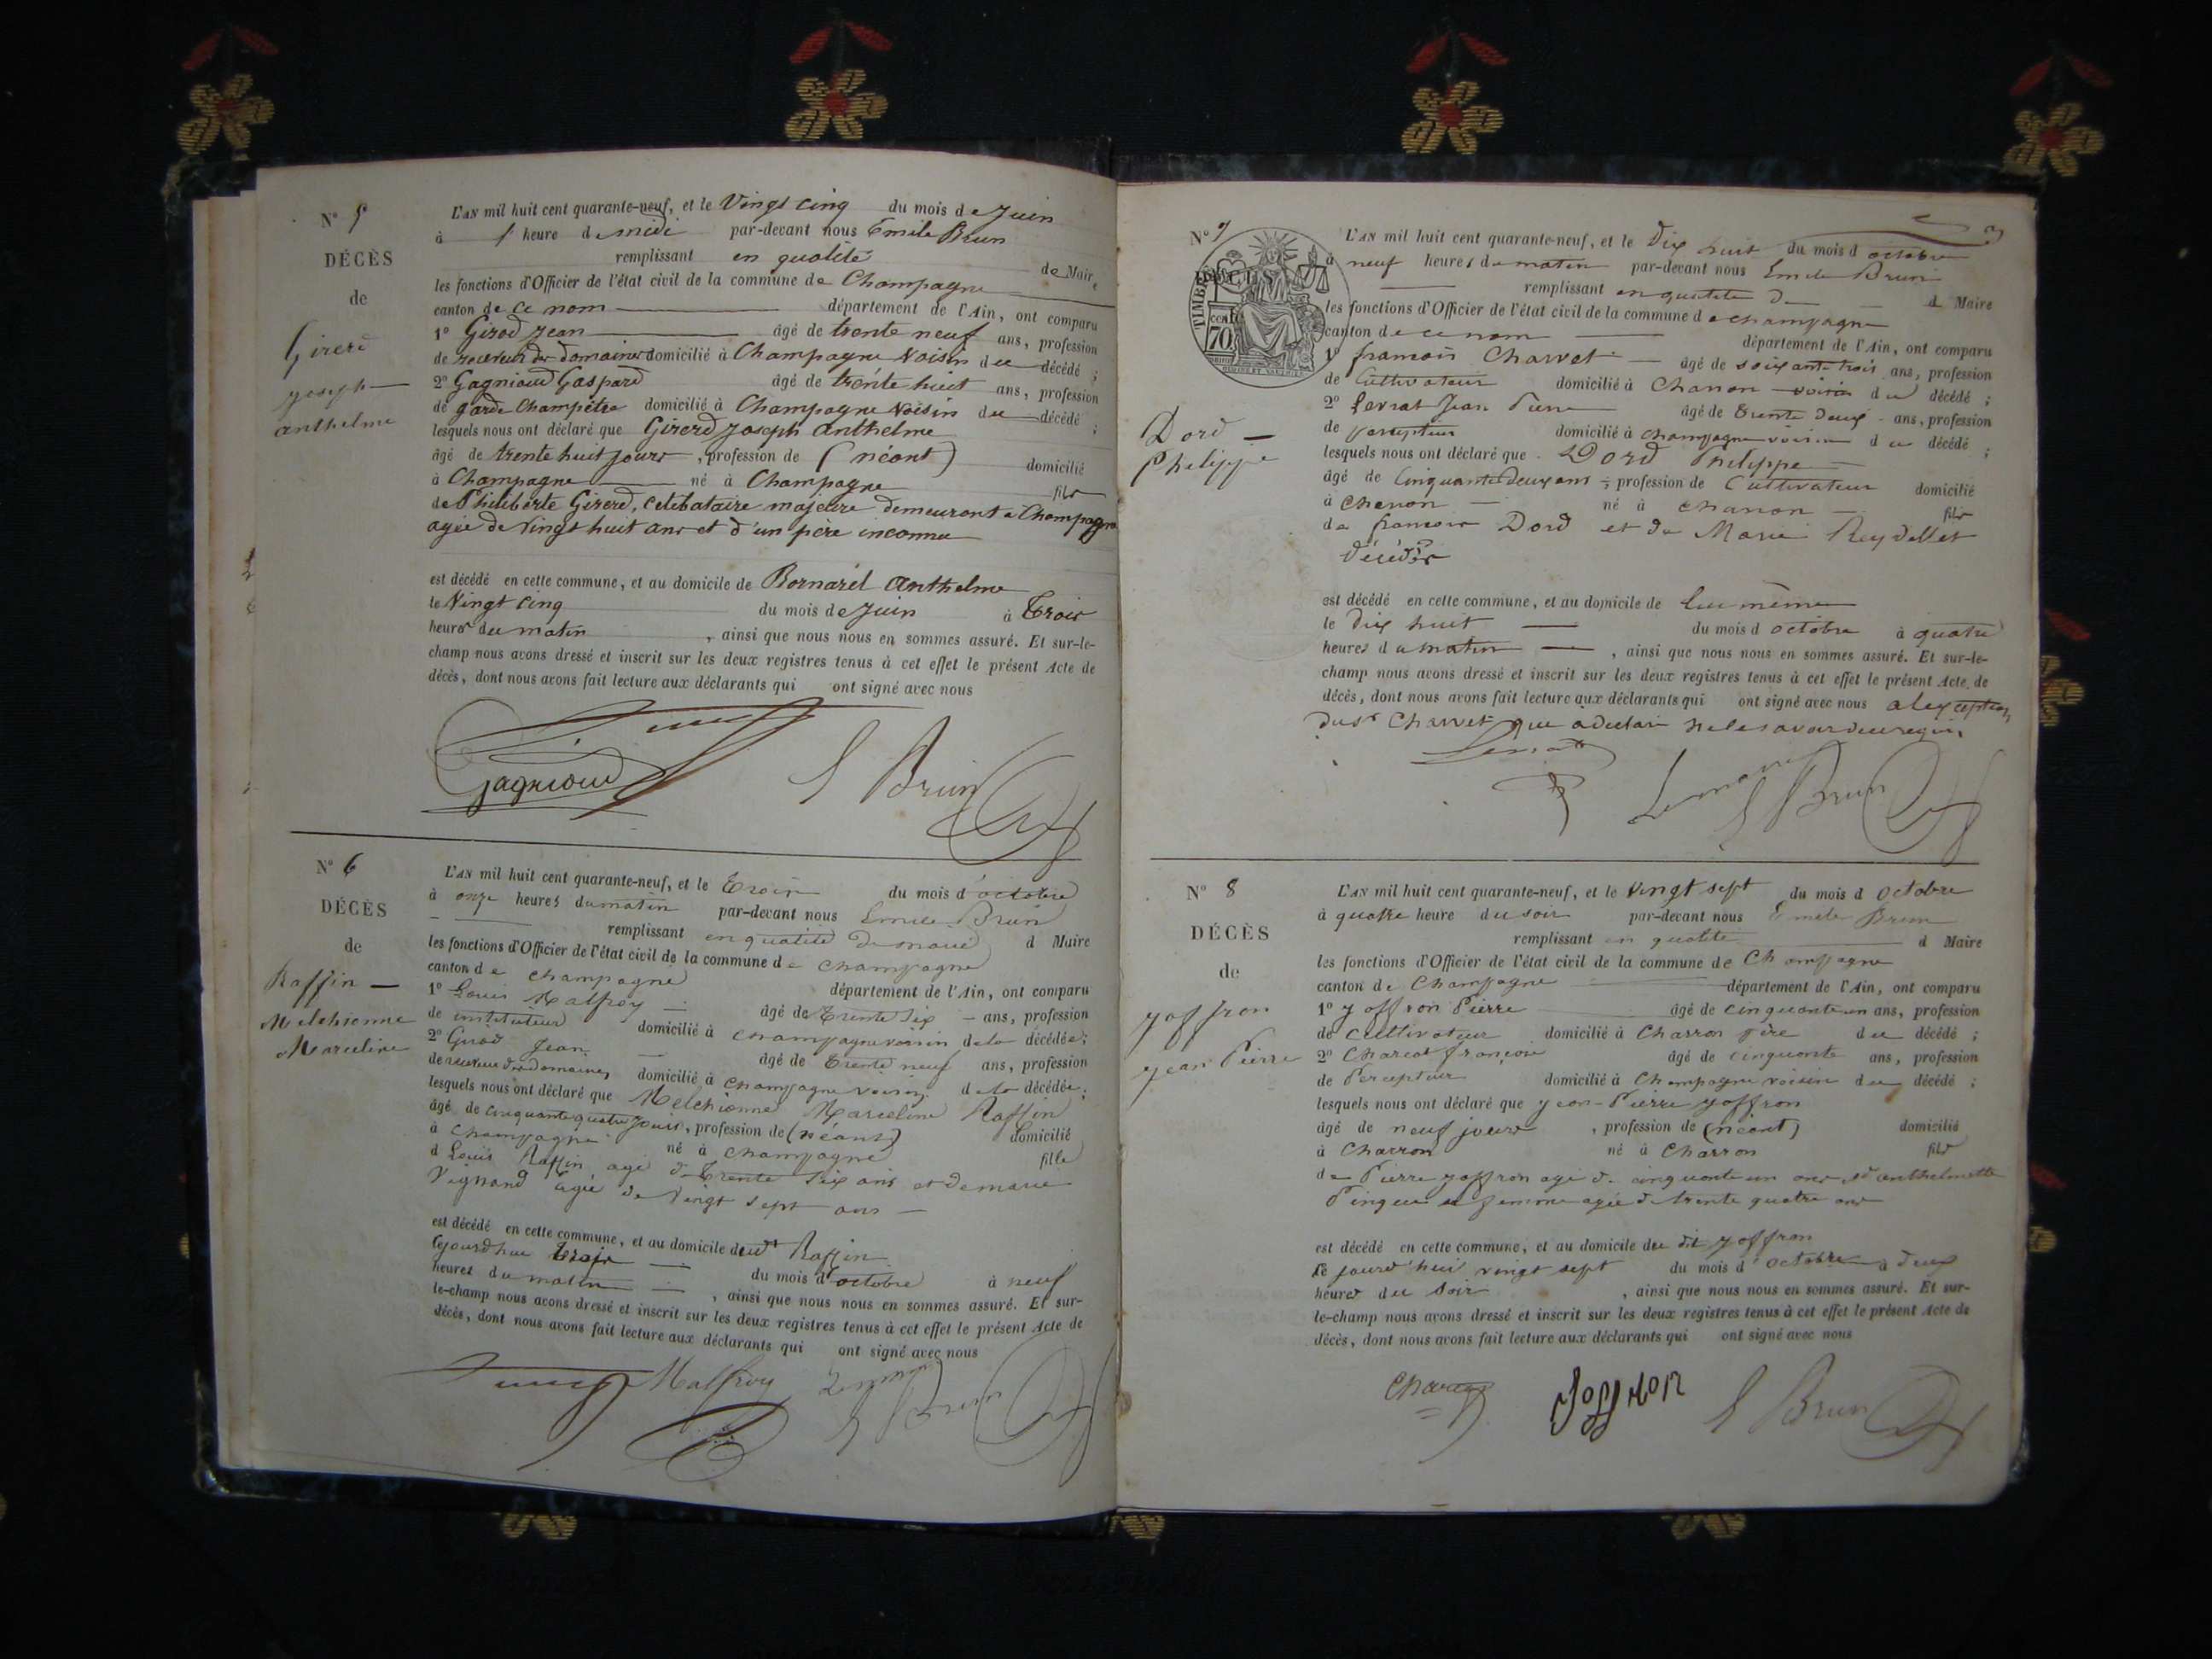 N° 5
DÉCÈS
de
Girerd
joseph
anthelme
L'AN mil huit cent quarante-neuf, et le Vingt cinq du mois de Juin
à 1 heure de midi par-devant nous Emile Brun
remplissant en qualité de Maire
les fonctions d'Officier de l'état civil de la commune de Champagne
canton de ce nom département de l'Ain, ont comparu
1° Girod jean âgé de trente neuf ans, profession
de receveur des domaines domicilié à Champagne Voisin du décédé ;
2° Gagnioud Gaspard âgé de trente huit ans, profession
de garde Champêtre domicilié à Champagne Voisin du décédé ;
lesquels nous ont déclaré que Girerd joseph anthelme
âgé de trente huit jours, profession de (néant) domicilié
à Champagne né à Champagne fils
de Philiberte Girerd, celibataire majeure demeurant à Champagne
agée de Vingt huit ans et d'un père inconnu
est décédé en cette commune, et au domicile de Bornarel Anthelme
le Vingt cinq du mois de Juin à Trois
heures du matin, ainsi que nous nous en sommes assuré. Et sur-le-
champ nous avons dressé et inscrit sur les deux registres tenus à cet effet le présent Acte de
décès, dont nous avons fait lecture aux déclarants qui ont signé avec nous
Gagnioud E Brun
N° 6
DÉCÈS
de
Raffin
Melchionne
Marceline
L'AN mil huit cent quarante-neuf, et le Trois du mois d'octobre
à onze heures du matin par-devant nous Emile Brun
remplissant en qualité de maire d Maire
les fonctions d'Officier de l'état civil de la commune de champagne
canton de champagne département de l'Ain, ont comparu
1° Louis Malfroy âgé de Trente Six ans, profession
de instituteur domicilié à champagne voisin de la décédée ;
2° Girod Jean âgé de Trente neuf ans, profession
de receveur des domaines domicilié à champagne voisin de la décédée ;
lesquels nous ont déclaré que Melchionne Marceline Raffin
âgé de cinquante quatre jours, profession de (néant) domicilié
à champagne né à champagne fille
d Louis Raffin agé de Trente Six ans et de marie
Vignand agée de Vingt sept ans
est décédé en cette commune, et au domicile dudt Raffin
le jourdhui Trois du mois d'octobre à neuf
heures du matin, ainsi que nous nous en sommes assuré. Et sur-
le-champ nous avons dressé et inscrit sur les deux registres tenus à cet effet le présent Acte de
décès, dont nous avons fait lecture aux déclarants qui ont signé avec nous
Malfroy Le maire E Brun
3
N° 7
TIMBRE
70
DÉCÈS
Dord
Philippe
L'AN mil huit cent quarante-neuf, et le Dix huit du mois d octobre
à neuf heures du matin par-devant nous Emile Brun
remplissant en qualité de d Maire
les fonctions d'Officier de l'état civil de la commune de champagne
canton de ce nom département de l'Ain, ont comparu
1° francois Charvet âgé de soixante trois ans, profession
de Cultivateur domicilié à Charron voisin du décédé ;
2° Serrat Jean Pierre âgé de Trente deux ans, profession
de percepteur domicilié à champagne voisin du décédé ;
lesquels nous ont déclaré que Dord Philippe
âgé de Cinquante Deux ans profession de Cultivateur domicilié
à charron né à charron fils
de francois Dord et de Marie Reydellet
décédés
est décédé en cette commune, et au domicile de lui même
le Dix huit du mois d octobre à quatre
heures du matin, ainsi que nous nous en sommes assuré. Et sur-le-
champ nous avons dressé et inscrit sur les deux registres tenus à cet effet le présent Acte de
décès, dont nous avons fait lecture aux déclarants qui ont signé avec nous alexception
du sr Charvet que a declaré ne le savoir de ce requis
Le maire E Brun
N° 8
DÉCÈS
de
yoffron
jean Pierre
L'AN mil huit cent quarante-neuf, et le Vingt sept du mois d Octobre
à quatre heure du soir par-devant nous Emile Brun
remplissant en qualité d Maire
les fonctions d'Officier de l'état civil de la commune de Champagne
canton de Champagne département de l'Ain, ont comparu
1° yoffron Pierre âgé de cinquante un ans, profession
de Cultivateur domicilié à Charron père du décédé ;
2° Charcot françois âgé de cinquante ans, profession
de Percepteur domicilié à Champagne voisin du décédé ;
lesquels nous ont déclaré que jean-Pierre yoffron
âgé de neuf jours, profession de (néant) domicilié
à Charron né à Charron fils
de Pierre yoffron agé de cinquante un ans, et anthelmette
Pinguet sa femme agée de trente quatre ans
est décédé en cette commune, et au domicile du dit yoffron
le jourd'hui vingt sept du mois d'octobre à deux
heures du soir, ainsi que nous nous en sommes assuré. Et sur-
le-champ nous avons dressé et inscrit sur les deux registres tenus à cet effet le présent Acte de
décès, dont nous avons fait lecture aux déclarants qui ont signé avec nous
Charcot Joffron E Brun